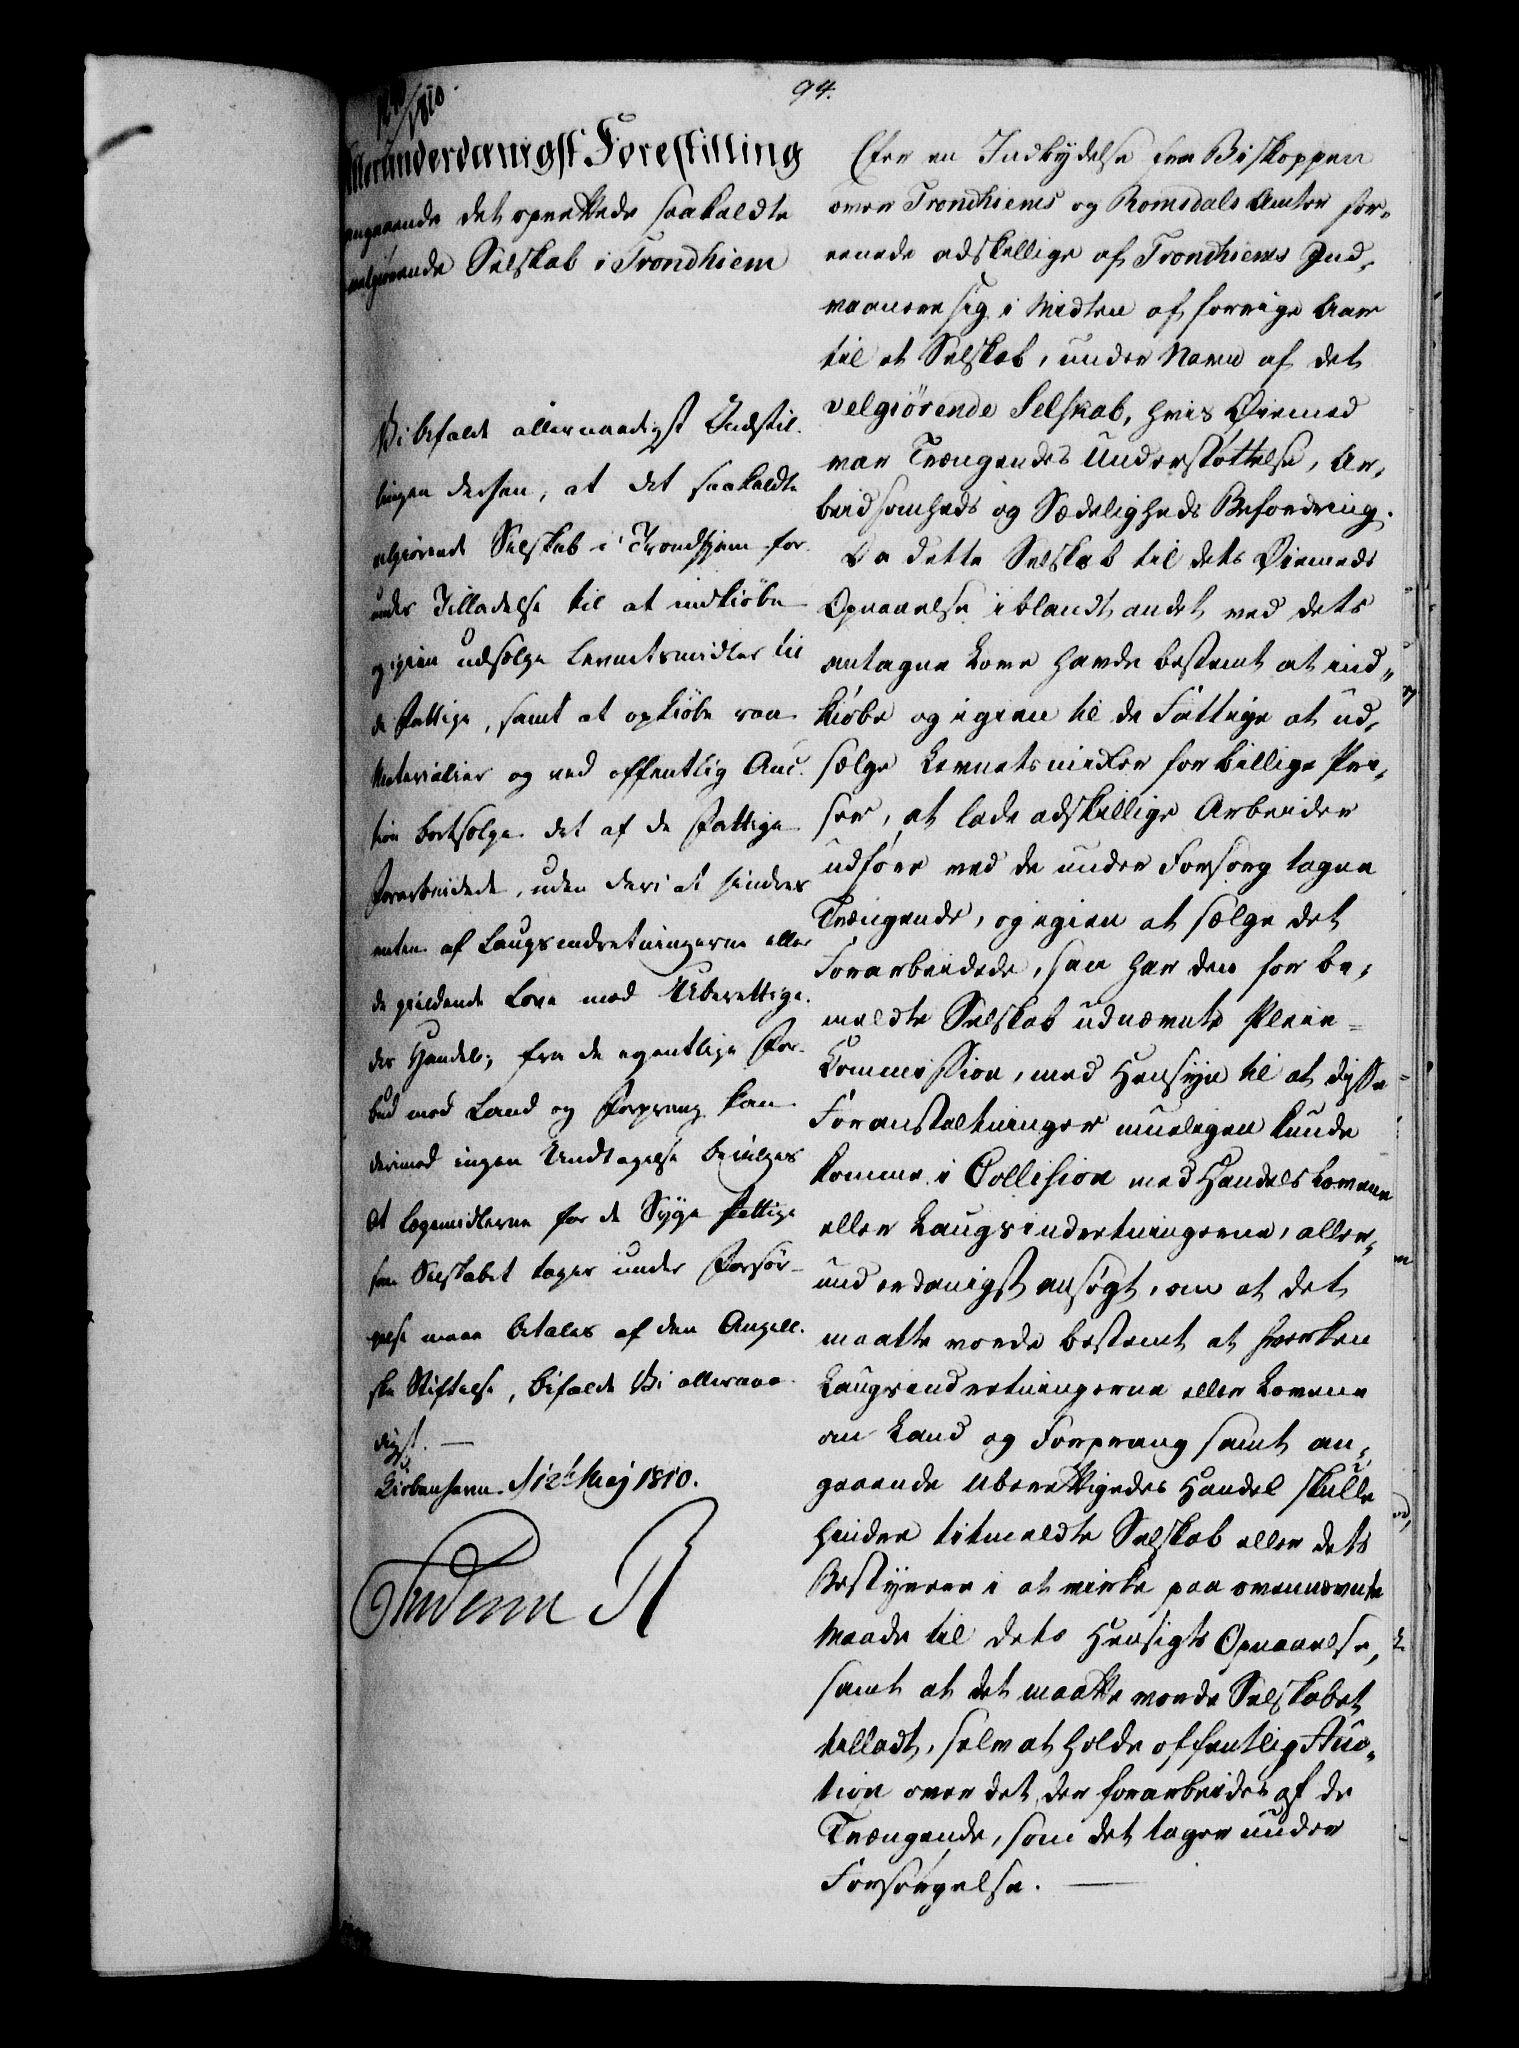 94.
1810.
Allerunderdanigst Forestilling
angaaende det oprettede saakaldte
velgiørende Selskab i Trondhiem
Vi bifalde allernaadigst Indstil-
lingen derhen, at det saakaldte
velgiørende Selskab i Trondhjem for-
undes Tilladelse til at indkiøbe
og igien udsælge Levnetsmidler til
de Fattige, samt at opkiøbe raae
Materialier og ved offentlig Auc-
tion bortsælge det af de Fattige
Forarbeidede, uden deri at hindres
enten af Laugsindretningerne eller
de gieldende Love mod Uberettige-
des Handel; fra de egentlige For-
bud mod Land og Forprang kan
derimod ingen Undtagelse bevilges
At Lægemidlerne for de Syge Fattige
som Selskabet tager under Forsør-
gelse maae betales af den Angell-
ske Stiftelse, bifalde Vi allernaa-
digst. —
Kiøbenhavn d 12te Maj 1810.
Frederik R
Efter en Indbydelse fra Biskoppen
over Trondhiems og Romsdals Amter for-
enede adskillige af Trondhiems Ind-
vaanere sig i Midten af forrige Aar
til et Selskab, under Navn af det
velgiörende Selskab, hvis Øiemed
var Trængendes Understøttelse, Ar-
beidsomheds og Sædeligheds Befordring.
Da dette Selskab til dets Øiemeds
Opnaaelse iblandt andet ved dets
antagne Love havde bestemt at ind-
kiøbe og igien til de Fattige at ud-
sælge Levnetsmidler for billige Pri-
ser, at lade adskillige Arbeider
udføre ved de under Forsorg tagne
Trængende, og igien at sælge det
Forarbeidede, saa har den for be-
meldte Selskab udnævnte Pleie-
Commission, med Hensyn til at disse
Foranstaltninger mueligen kunde
komme i Collision med Handels Lovene
eller Laugsindretningerne, aller-
underdanigst ansøgt, om at det
maatte vorde bestemt at hverken
Laugsindretningerne eller Lovene
om Land og Forprang samt an-
gaaende Uberettigedes Handel skulle
hindre titmeldte Selskab eller dets
Bestyrere i at virke paa ovennævnte
Maade til dets Hensigts Opnaaelse,
samt at det maatte vorde Selskabet
tilladt, selv at holde offentlig Auc-
tion over det, der forarbeides af de
Trængende, som det tager under
Forsørgelse. —